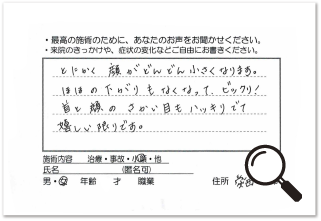 ・最高の施術のために、あなたのお声をお聞かせください。
・来院のきっかけや、症状の変化などご自由にお書きください。
とにかく 顔がどんどん小さくなります。
ほほの下がりもなくなって、ビックリ!
首と顔の さかい目も ハッキリでて
嬉しい限りです。
施術内容 治療・事故・小顔・他
氏名 (匿名可)
男・女 年齢 才 職業 住所